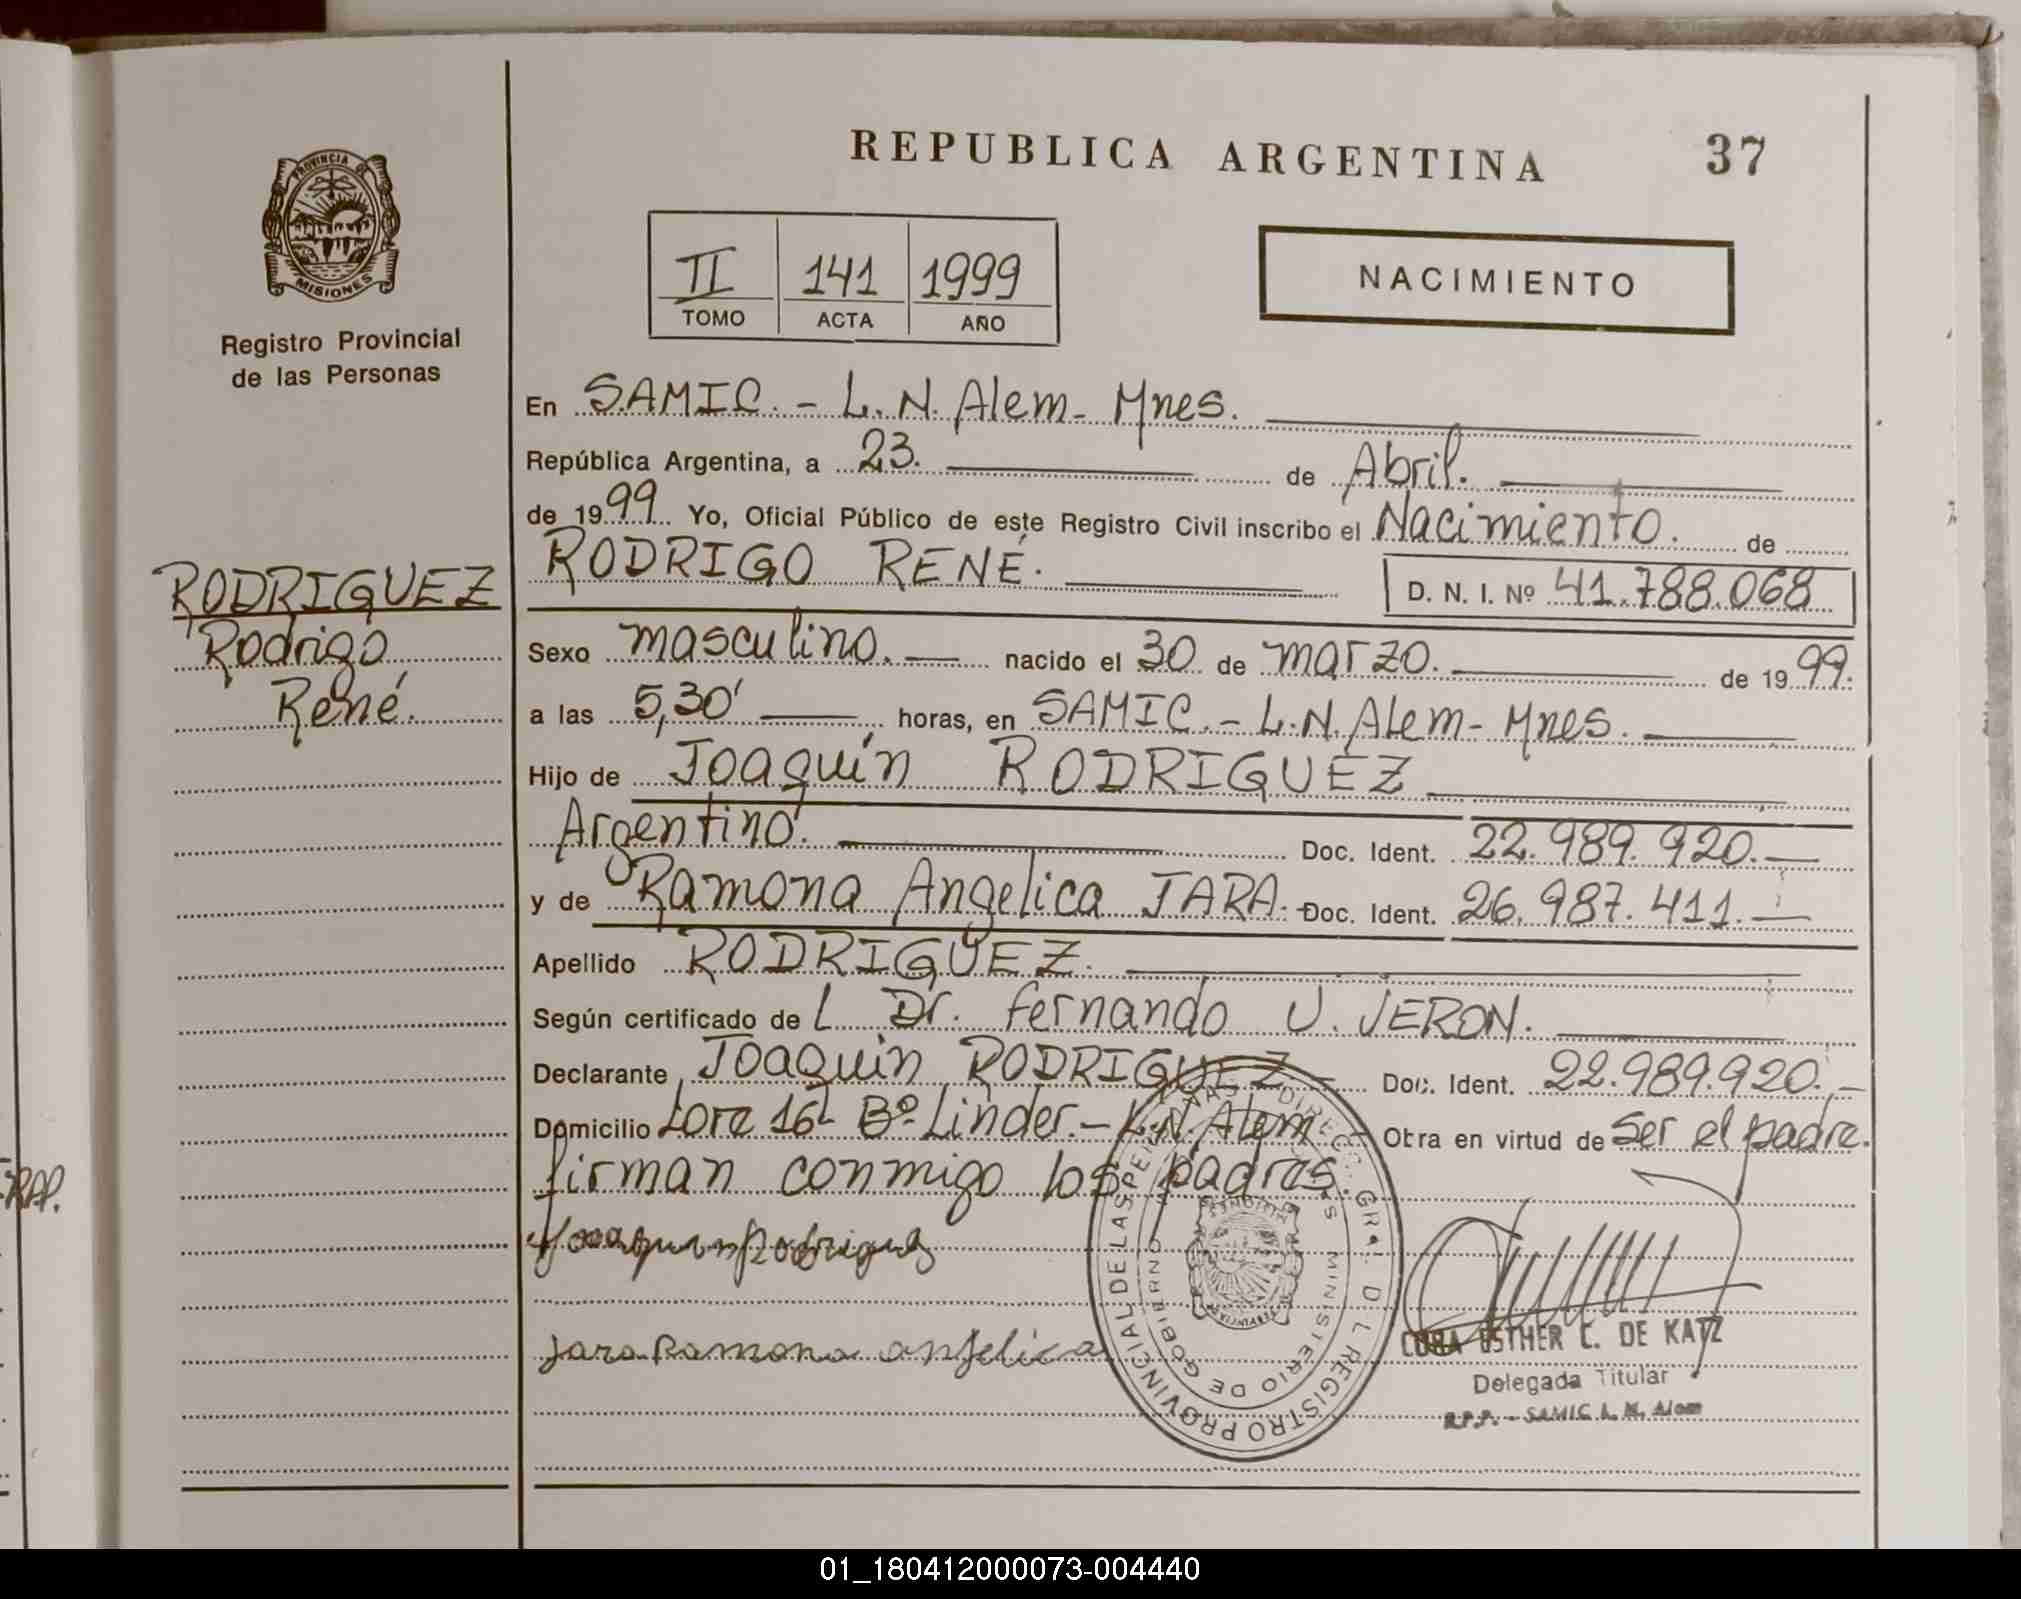 REPUBLICA ARGENTINA 37
PROVINCIA DE
MISIONES
Registro Provincial
de las Personas
II 141 1999
TOMO ACTA AÑO
NACIMIENTO
En SAMIC. - L. N. Alem - Mnes.
República Argentina, a 23. de Abril.
de 1999 Yo, Oficial Público de este Registro Civil inscribo el Nacimiento. de
RODRIGO RENÉ. D. N. I. Nº 41.788.068
RODRIGUEZ
Rodrigo
René.
Sexo masculino. nacido el 30 de marzo. de 1999.
a las 5,30' horas, en SAMIC. - L. N. Alem - Mnes.
Hijo de Joaquín RODRIGUEZ
Argentino. Doc. Ident. 22.989.920.-
y de Ramona Angelica JARA. Doc. Ident. 26.987.411.-
Apellido RODRIGUEZ.
Según certificado de L Dr. Fernando U. JERON.
Declarante Joaquin RODRIGUEZ - Doc. Ident. 22.989.920.-
Domicilio Lote 16- Bº Linder. - L.N. Alem Obra en virtud de Ser el padre.
firman conmigo los padres.
Joaquin Rodriguez
Jara Ramona anjelica
REGISTRO PROVINCIAL DE LAS PERSONAS
MINISTERIO DE GOBIERNO
CORA ESTHER C. DE KATZ
Delegada Titular
R.P.P. - SAMIC L. N. Alem
RAP.
01_180412000073-004440